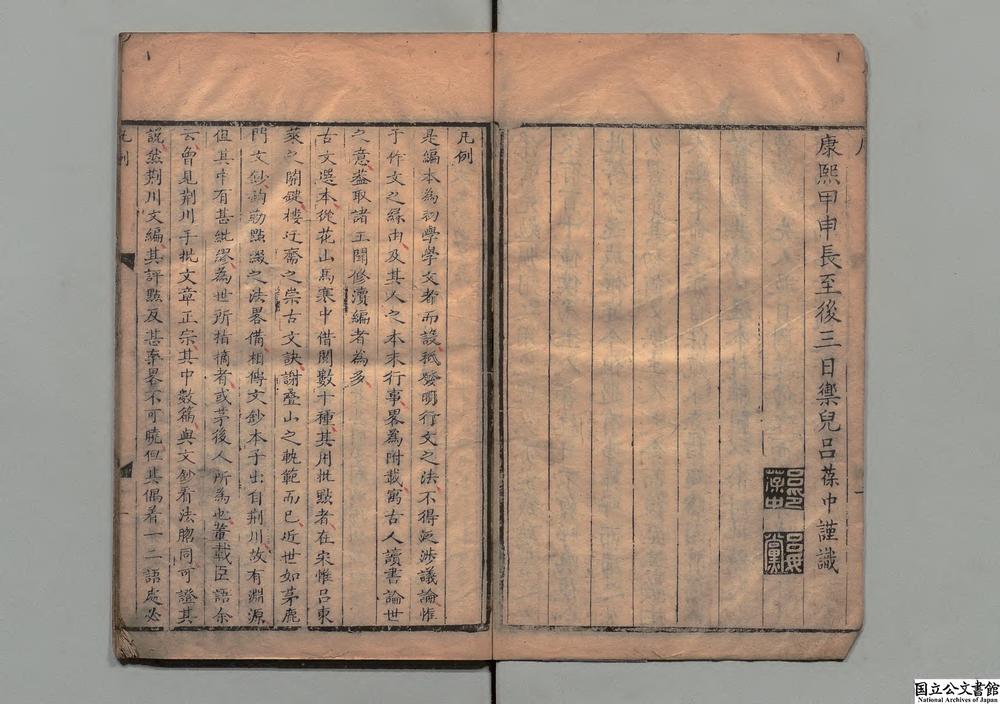 康熙甲申長至後三日禦兒呂葆中謹識
凡例
是編本為初學學文者而設秪發明行文之法不得泛涉議論惟
于作文之緣由及其人之本末行事畧為附載窮古人讀書論世
之意葢取諸王聞修瀆編者為多
古文選本從花山馬寒中借閱數十種其用批點者在宋惟呂東
萊之關鍵樓迂齋之崇古文訣謝疊山之軌範而已近世如茅鹿
門文鈔鉤勒點綴之法畧備相傳文鈔本子出自荆川故有淵源
但其中有甚紕繆為世所指摘者或茅後人所為也董載臣語余
云曾見荆川手批文章正宗其中數篇與文鈔看法脗同可證其
說然荆川文編其評點反甚率畧不可曉但其偶着一二語處必
凡例
一
国立公文書館
National Archives of Japan